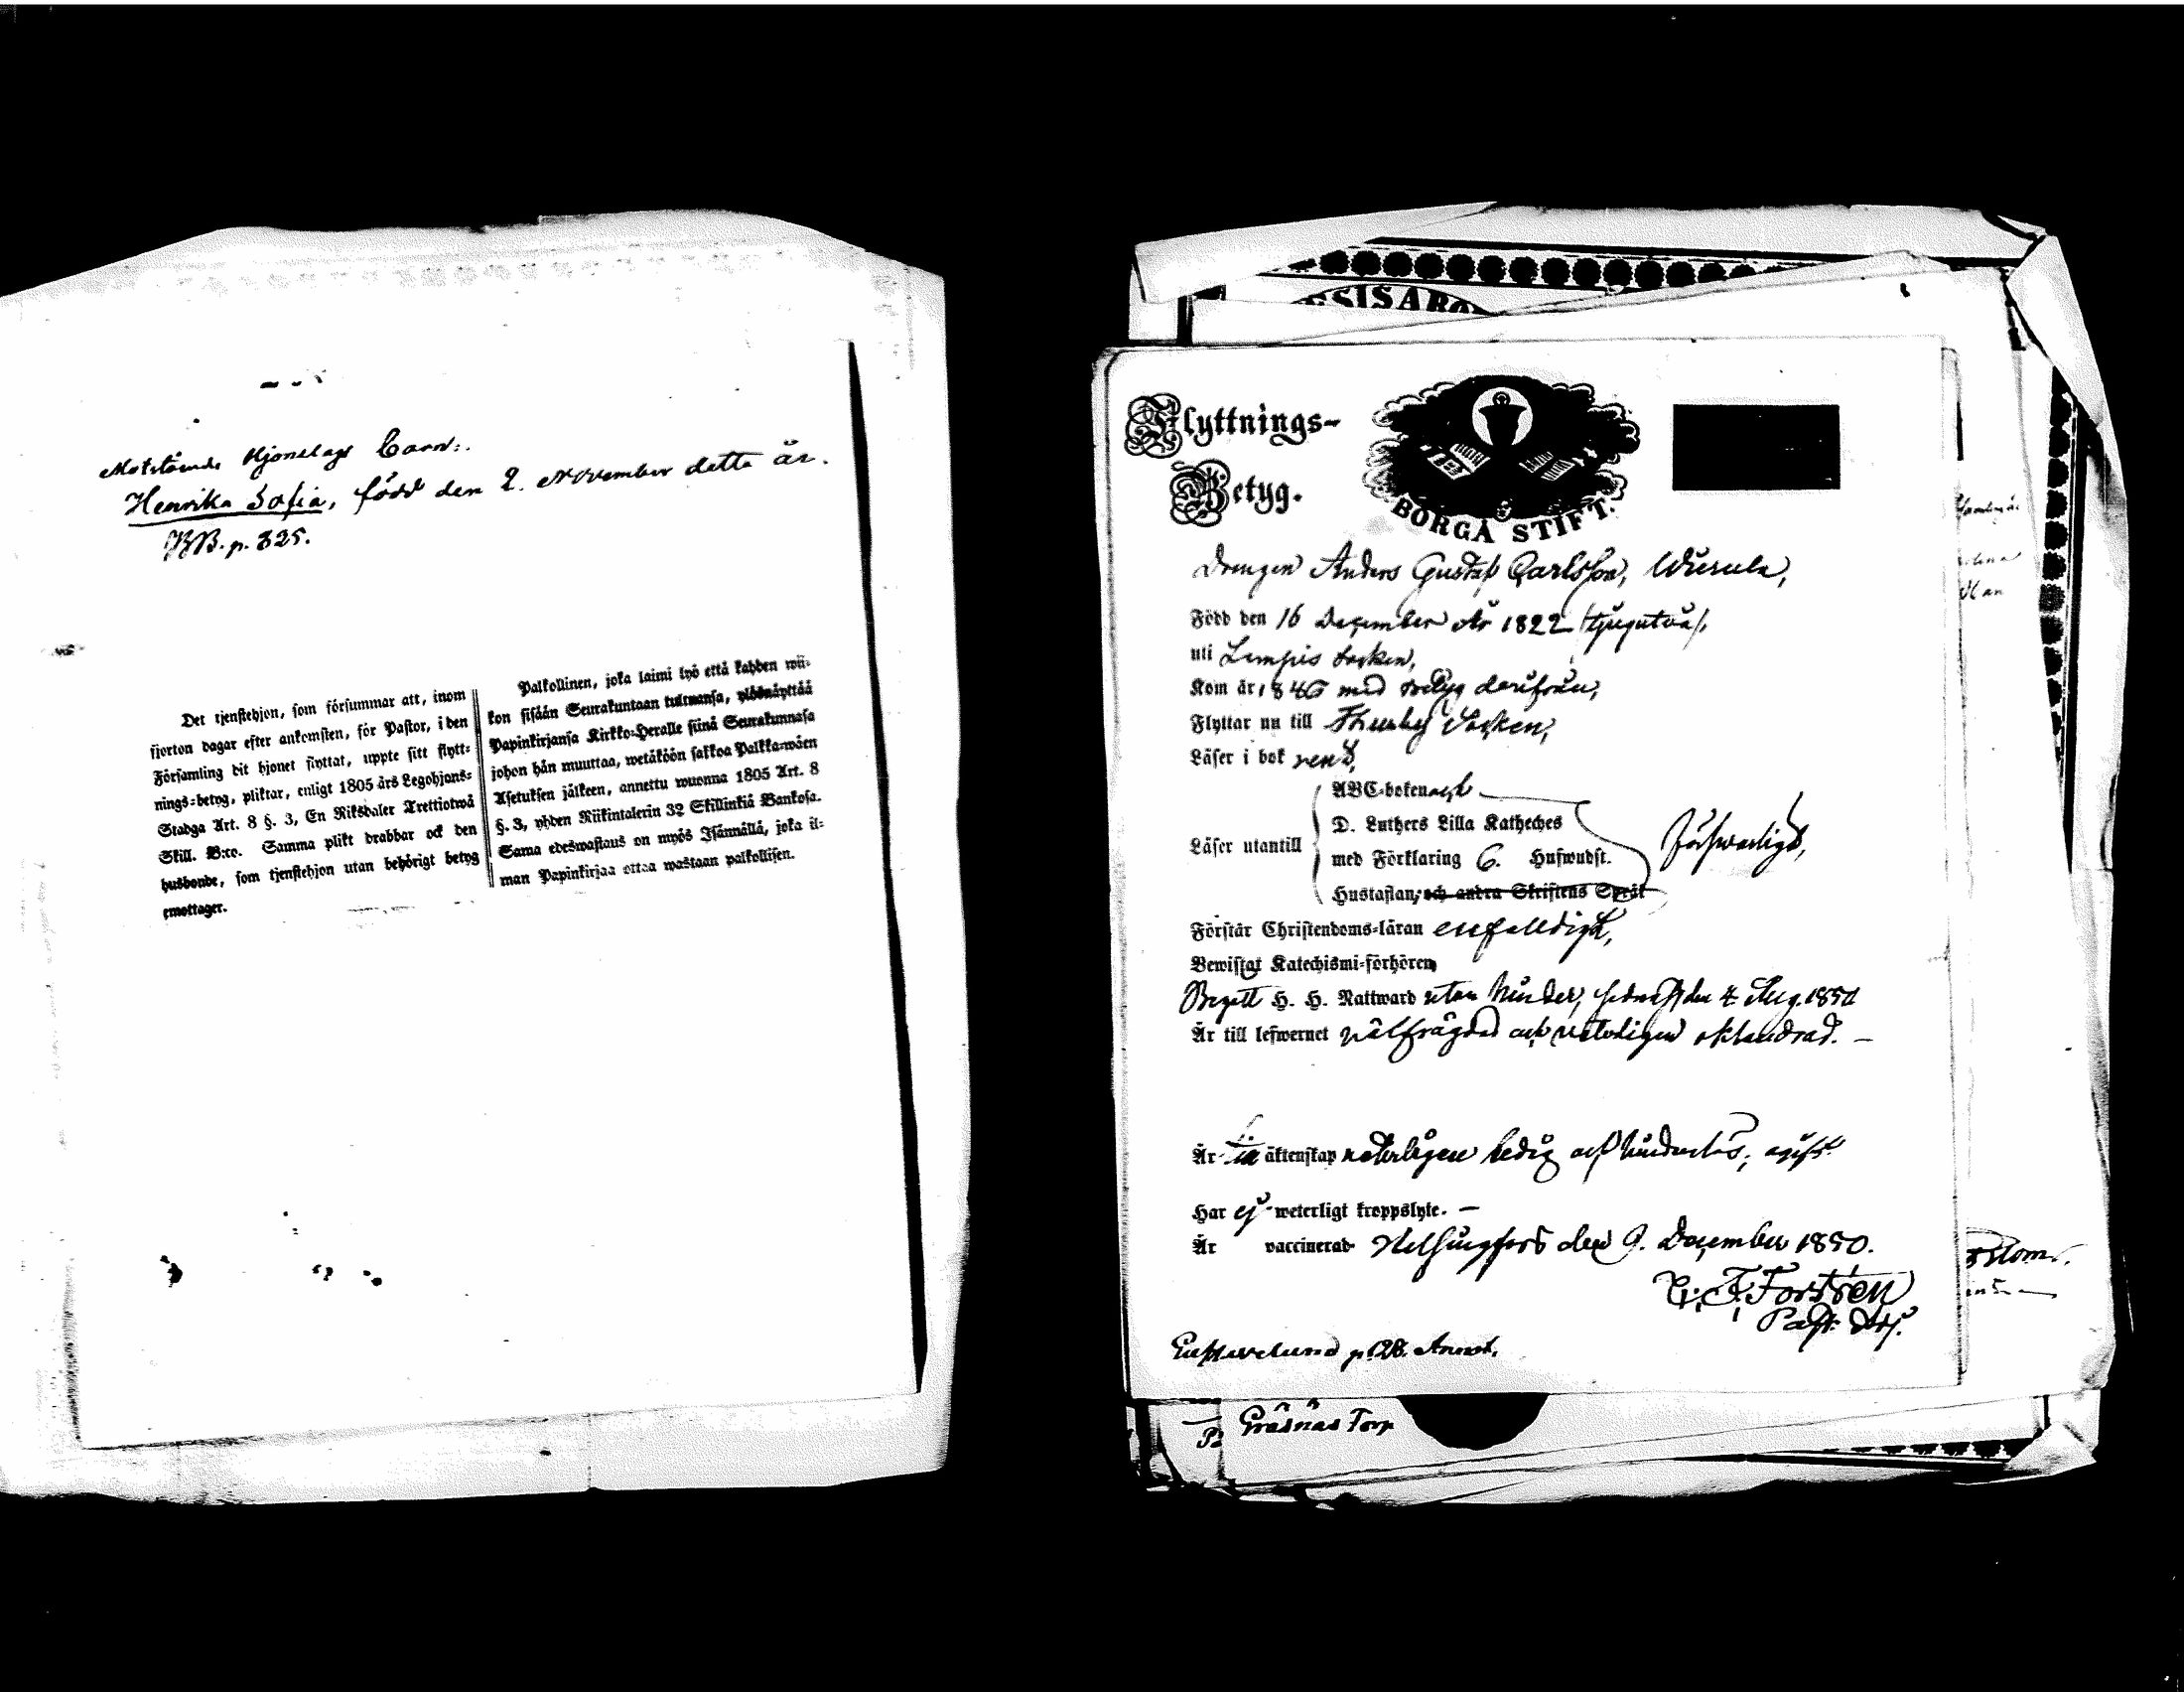 Motstående Hjonelags Barn:.
Henrika Sofia, född den 2. November detta år.
KB. p. 325.
Det tjenstehjon, som försummar att, inom
fjorton dagar efter ankomsten, för Pastor, i den
Församling dit hjonet flyttat, uppte sitt flytt-
nings-betyg, pliktar, enligt 1805 års Legohjons-
Stadga Art. 8 §. 3, En Riksdaler Trettiotwå
Skill. B:co. Samma plikt drabbar ock den
husbonde, som tjenstehjon utan behörigt betyg
emottager.
Palkollinen, joka laimi lyö että kahden wii-
kon sisään Seurakuntaan tultuansa, ylösnäyttää
Papinkirjansa Kirkko-Heralle siinä Seurakunnasa
johon hän muuttaa, wetäköön sakkoa Palkka-wäen
Asetuksen jälkeen, annettu wuonna 1805 Art. 8
§. 3, yhden Riikintalerin 32 Skillinkiä Bankosa.
Sama edeswastaus on myös Isännällä, joka il-
man Papinkirjaa ottaa wastaan palkollisen.
SISABO
Flyttnings-
Betyg.
BORGÅ STIFT.
Drengen Anders Gustaf Carlsson,
Född den 16 December År 1822 /tjugutvå/,
uti Lempis Socken,
Kom år 1846 med betyg derifrån,
Flyttar nu till Thusby Socken,
Läser i bok rent,
ABC-boken och
D. Luthers Lilla Katheches
Läser utantill
med Förklaring 6. Hufwudst.
försvarligt,
Hustaflan, och andra Skriftens Språk
Förstår Christendoms-läran enfaldigt,
Bewistat Katechismi-förhören
Begått H. H. Nattward utan hinder, sednast den 4 Aug. 1850
Är till lefwernet välfrägdad och veterligen oklandrad. —
Är äktenskap veterligen ledig och hinderlös,
Har ej weterligt kroppslyte. —
Är vaccinerad Helsingfors den 9. December 1850.
Forstrén
Past. Adj.
Gustavelund p. 128.
Gräsnäs Torp